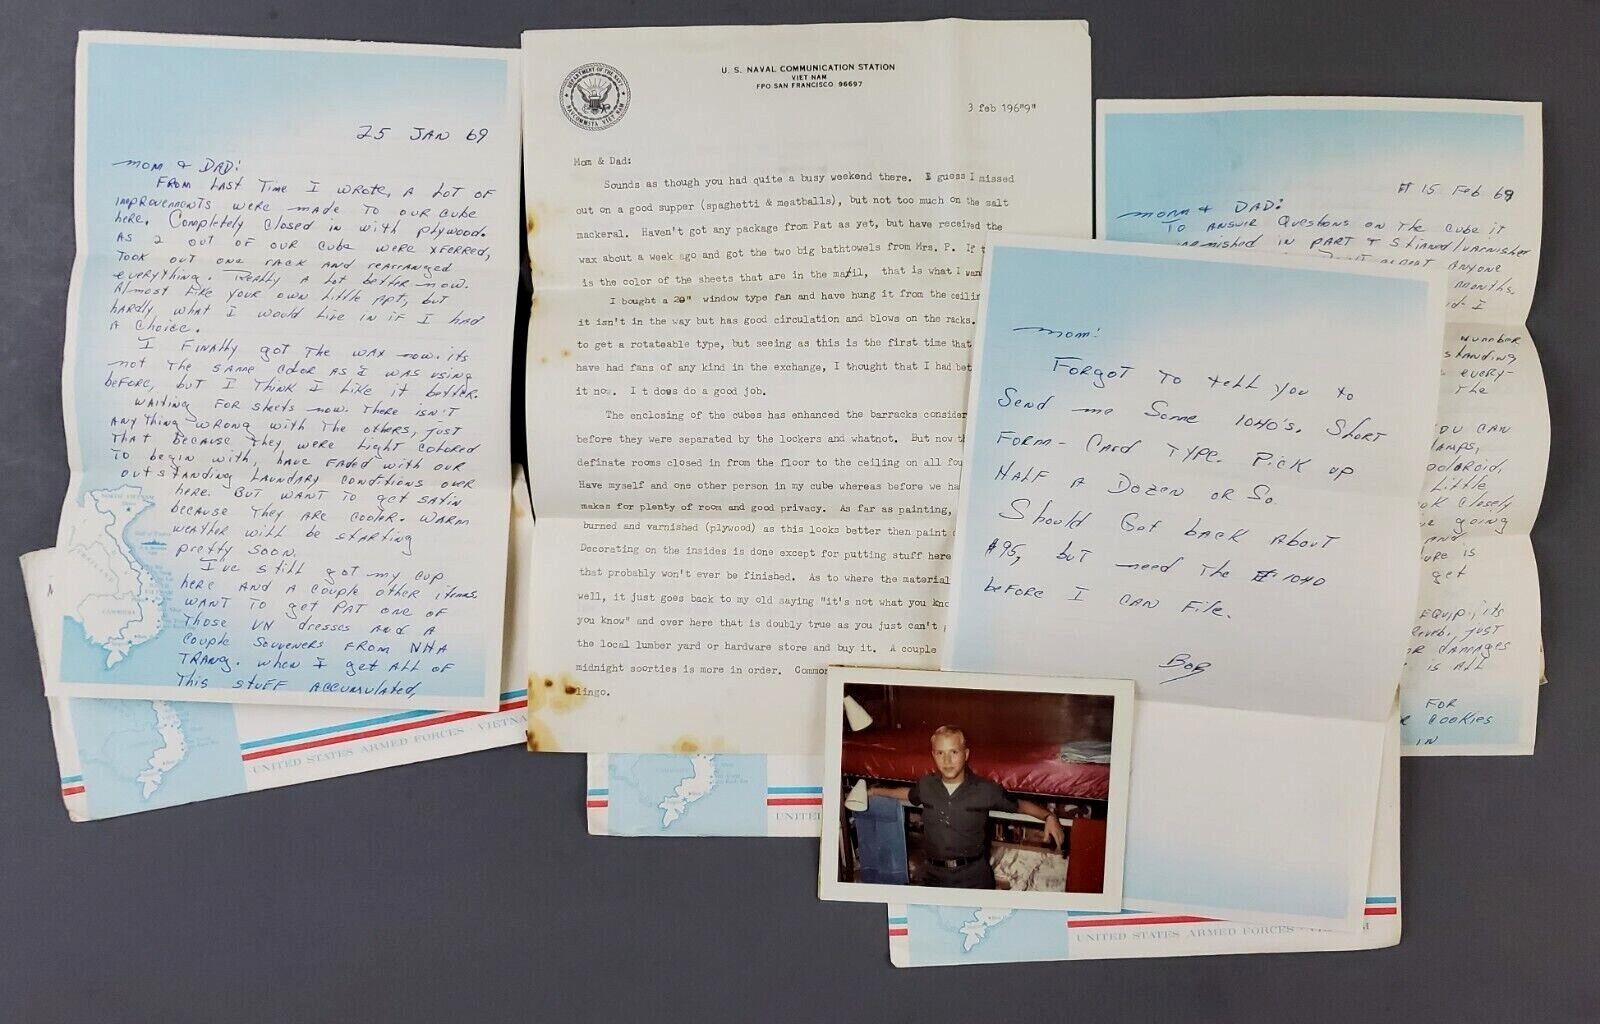 25 JAN 69
MOM & DAD:
FROM LAST TIME I WROTE, A LOT OF
IMPROVEMENTS WERE MADE TO OUR CUBE
HERE. COMPLETELY CLOSED IN WITH PLYWOOD.
AS 2 OUT OF OUR CUBE WERE XFERRED,
TOOK OUT ONE RACK AND REARRANGED
EVERYTHING. REALLY A LOT BETTER NOW.
ALMOST LIKE YOUR OWN LITTLE APT, BUT
HARDLY WHAT I WOULD LIVE IN IF I HAD
A CHOICE.
I FINALLY GOT THE WAX NOW. ITS
NOT THE SAME COLOR AS I WAS USING
BEFORE, BUT I THINK I LIKE IT BETTER.
WAITING FOR SHEETS NOW. THERE ISN'T
ANYTHING WRONG WITH THE OTHERS, JUST
THAT BECAUSE THEY WERE LIGHT COLORED
TO BEGIN WITH, HAVE FADED WITH OUR
OUTSTANDING LAUNDRY CONDITIONS OVER
HERE. BUT WANT TO GET SATIN
BECAUSE THEY ARE COOLER. WARM
WEATHER WILL BE STARTING
PRETTY SOON.
I'VE STILL GOT MY CUP
HERE AND A COUPLE OTHER ITEMS.
WANT TO GET PAT ONE OF
THOSE VN DRESSES AND A
COUPLE SOUVENERS FROM NHA
TRANG. WHEN I GET ALL OF
THIS STUFF ACCUMULATED,
NORTH VIETNAM
THAILAND
CAMBODIA
UNITED STATES ARMED FORCES · VIETNA
DEPARTMENT OF THE NAVY
NAVCOMMSTA VIET NAM
U. S. NAVAL COMMUNICATION STATION
VIET NAM
FPO SAN FRANCISCO 96697
3 feb 196"9"
Mom & Dad:
Sounds as though you had quite a busy weekend there. I guess I missed
out on a good supper (spaghetti & meatballs), but not too much on the salt
mackeral. Haven't got any package from Pat as yet, but have received the
wax about a week ago and got the two big bathtowels from Mrs. P. If t
is the color of the sheets that are in the mail, that is what I wan
I bought a 20" window type fan and have hung it from the ceilin
it isn't in the way but has good circulation and blows on the racks.
to get a rotateable type, but seeing as this is the first time that
have had fans of any kind in the exchange, I thought that I had bet
it now. I it does do a good job.
The enclosing of the cubes has enhanced the barracks consider
before they were separated by the lockers and whatnot. But now th
definate rooms closed in from the floor to the ceiling on all fou
Have myself and one other person in my cube whereas before we ha
makes for plenty of room and good privacy. As far as painting,
burned and varnished (plywood) as this looks better then paint
Decorating on the insides is done except for putting stuff here
that probably won't ever be finished. As to where the material
well, it just goes back to my old saying "it's not what you kno
you know" and over here that is doubly true as you just can't
the local lumber yard or hardware store and buy it. A couple
midnight soorties is more in order. Common
lingo.
UNITED
MOM:
FORGOT TO TELL YOU TO
SEND ME SOME 1040'S. SHORT
FORM - CARD TYPE. PICK UP
HALF A DOZEN OR SO.
SHOULD GET BACK ABOUT
$95, BUT NEED THE 1040
BEFORE I CAN FILE.
BOB
15 FEB 69
MOM & DAD:
TO ANSWER QUESTIONS ON THE CUBE IT
IN PART & STAINED/VARNISHED
ANYONE
MONTHS.
I
NUMBER
STANDING
EVERY-
THE
YOU CAN
LAMPS,
POLAROID,
LITTLE
LOOK CLOSELY
GOING
AND
IS
GET
EQUIP, ITS
REVERB, JUST
OR DAMAGES
IS ALL
FOR
COOKIES
IN
UNITED STATES ARMED FORCES ·